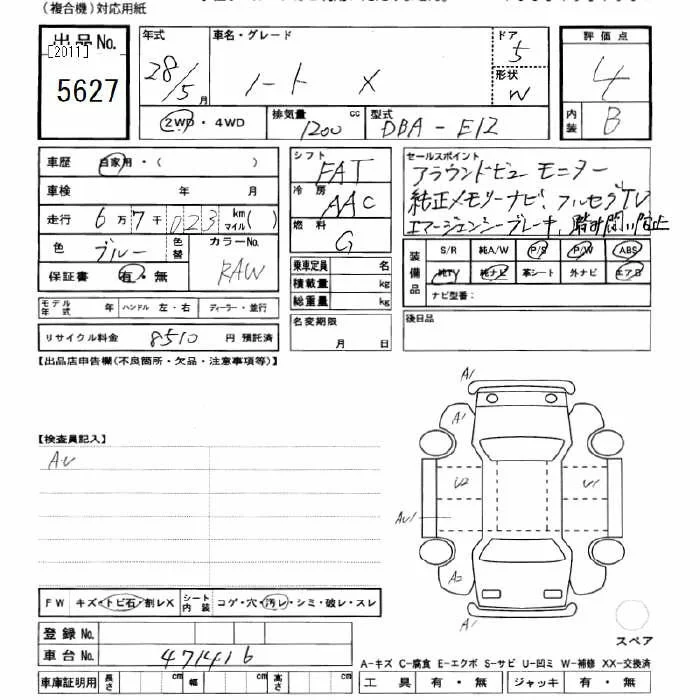 (複合機)対応用紙
出品No.
[2011]
5627
年式
28/5月
車名・グレード
ノート X
ドア
5
形状
W
評価点
4
内装
B
2WD・4WD
排気量
1200 cc
型式
DBA-E12
車歴 自家用・( )
車検 年 月
走行 6万7千023 km マイル( )
色 ブルー 色替
カラーNo.
RAW
保証書 有・無
モデル年式 年 ハンドル 左・右 ディーラー・並行
リサイクル料金 8510 円 預託済
シフト
FAT
冷房
AAC
燃料
G
乗車定員 名
積載量 kg
総重量 kg
名変期限
月 日
セールスポイント
アラウンドビューモニター
純正メモリーナビ、フルセグTV
エマージェンシーブレーキ、踏み間違い防止
装備品
S/R 純A/W P/S P/W ABS
純TV 純ナビ 革シート 外ナビ エアB
ナビ型番:
後日品
【出品店申告欄(不良箇所・欠品・注意事項等)】
【検査員記入】
AU
A1
A1
U2
U1
AU1
A2
A1
FW キズ・トビ石・割レX シート内装 コゲ・穴・汚レ・シミ・破レ・スレ
登録No.
車台No. 471416
車庫証明用 長さ cm 幅 cm 高さ cm
スペア
A-キズ C-腐食 E-エクボ S-サビ U-凹ミ W-補修 XX-交換済
工具 有・無 ジャッキ 有・無